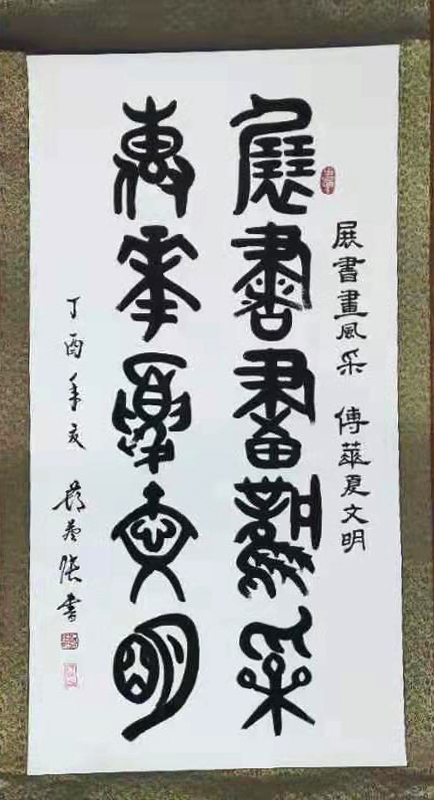 展書畫風采 傳華夏文明
展書畫風采
傳華夏文明
丁酉年夏 張書